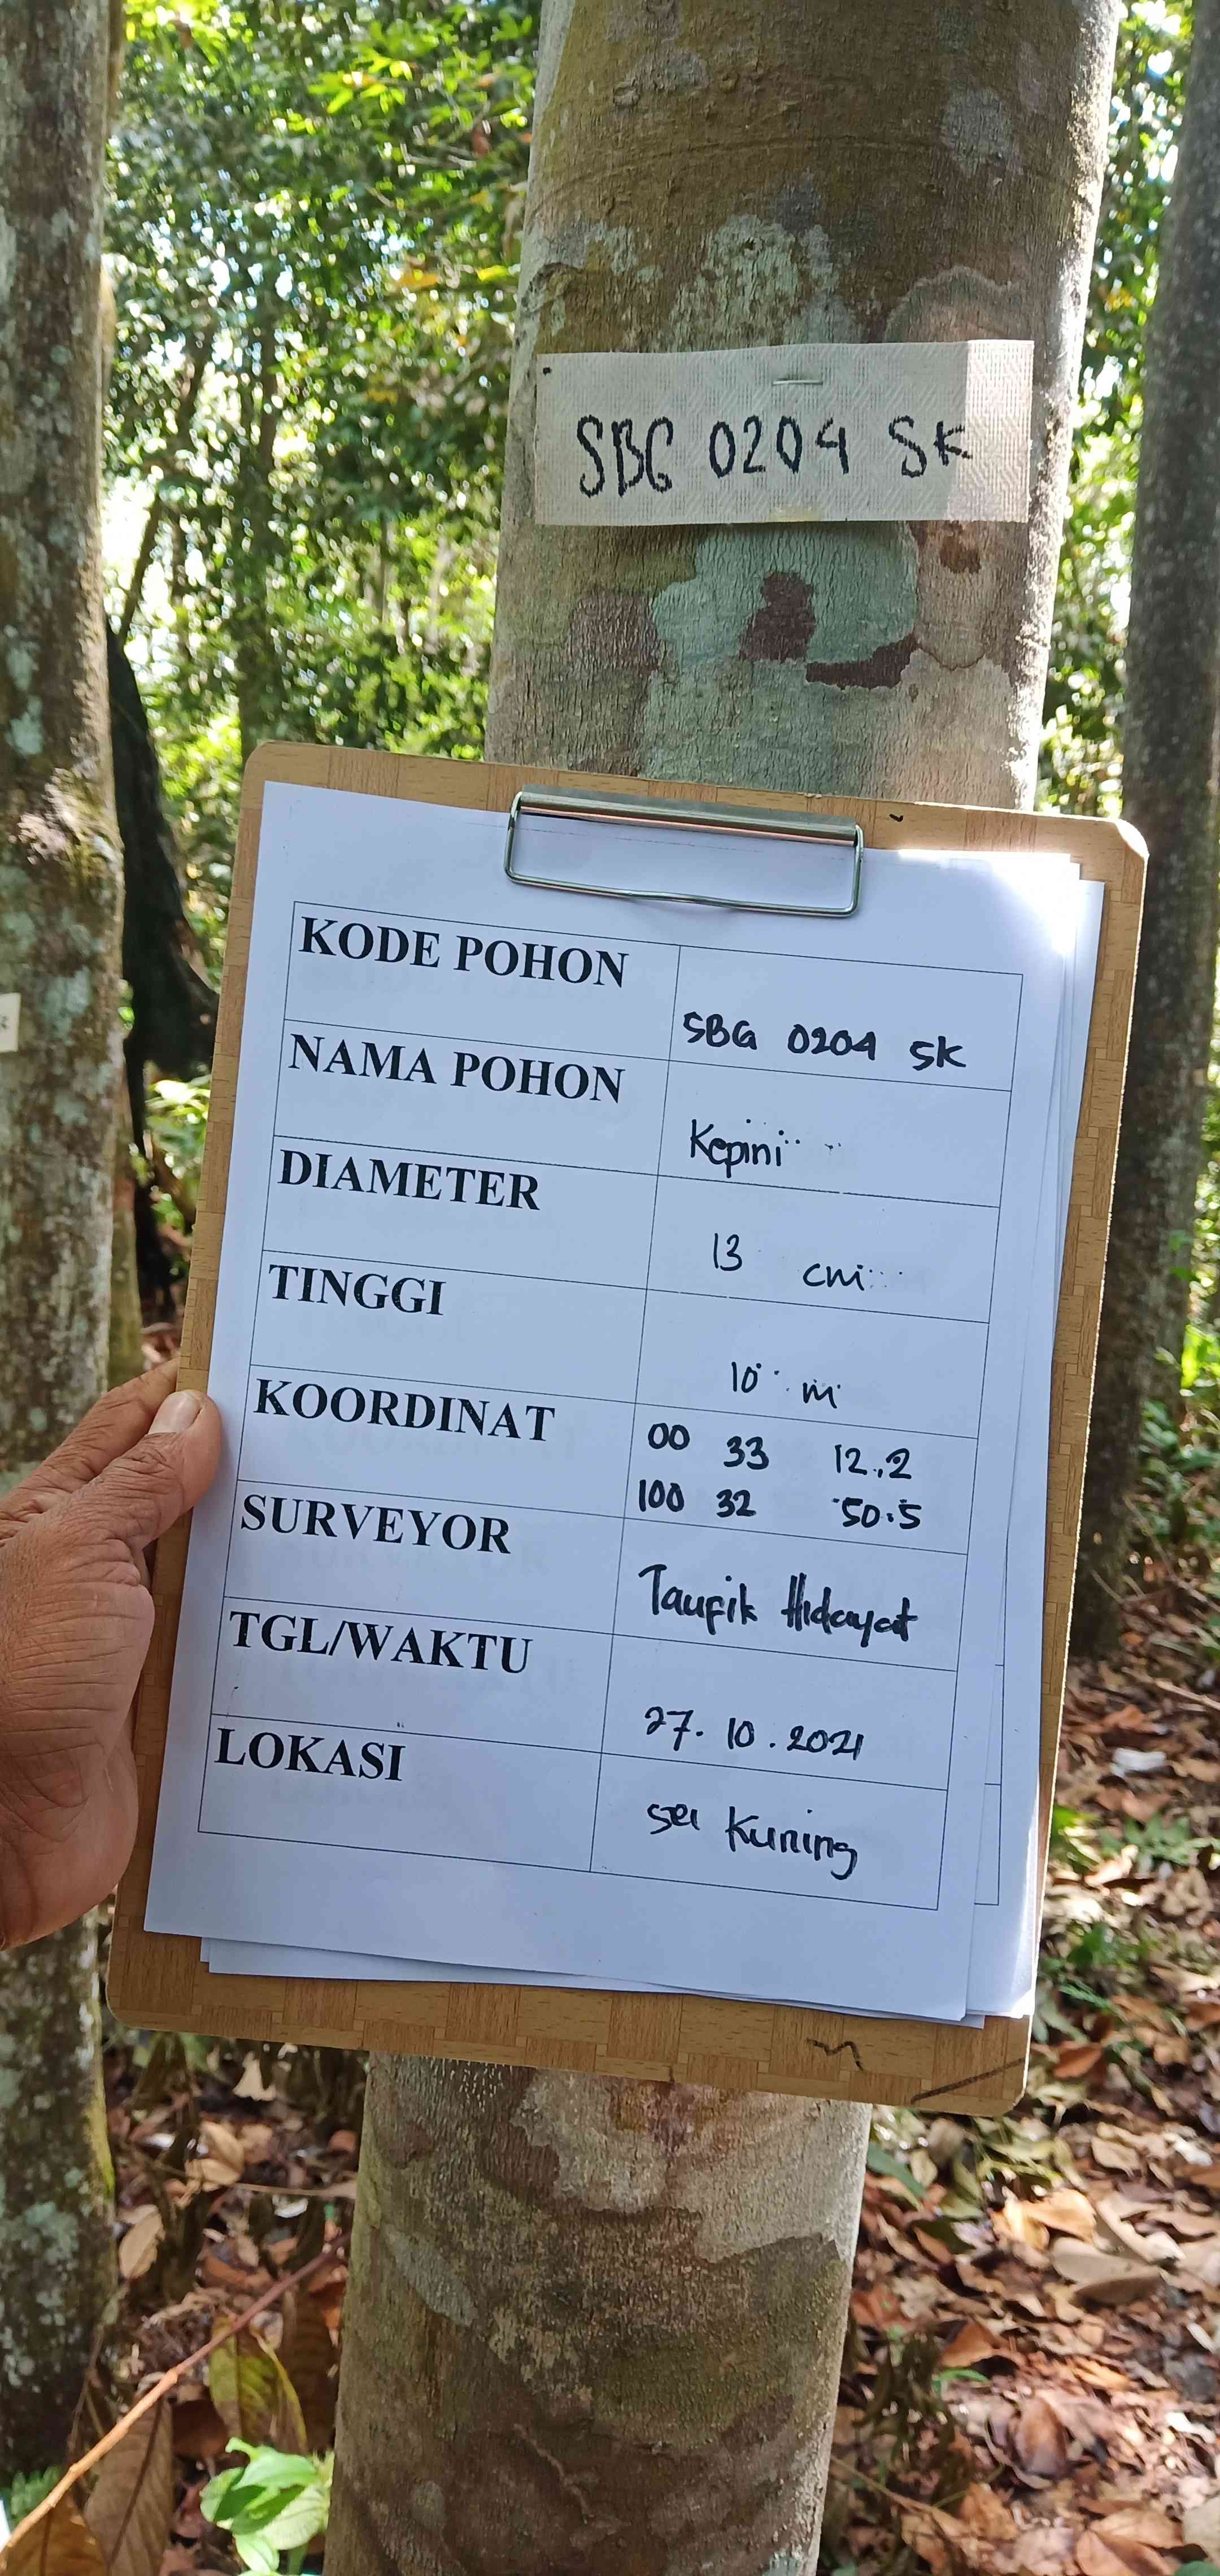 SBG 0204 SK
KODE POHON
SBG 0204 SK
NAMA POHON
Kepini
DIAMETER
13 cm
TINGGI
10 m
KOORDINAT
00 33 12.2
100 32 50.5
SURVEYOR
Taufik Hidayat
TGL/WAKTU
27.10.2021
LOKASI
Sei Kuning